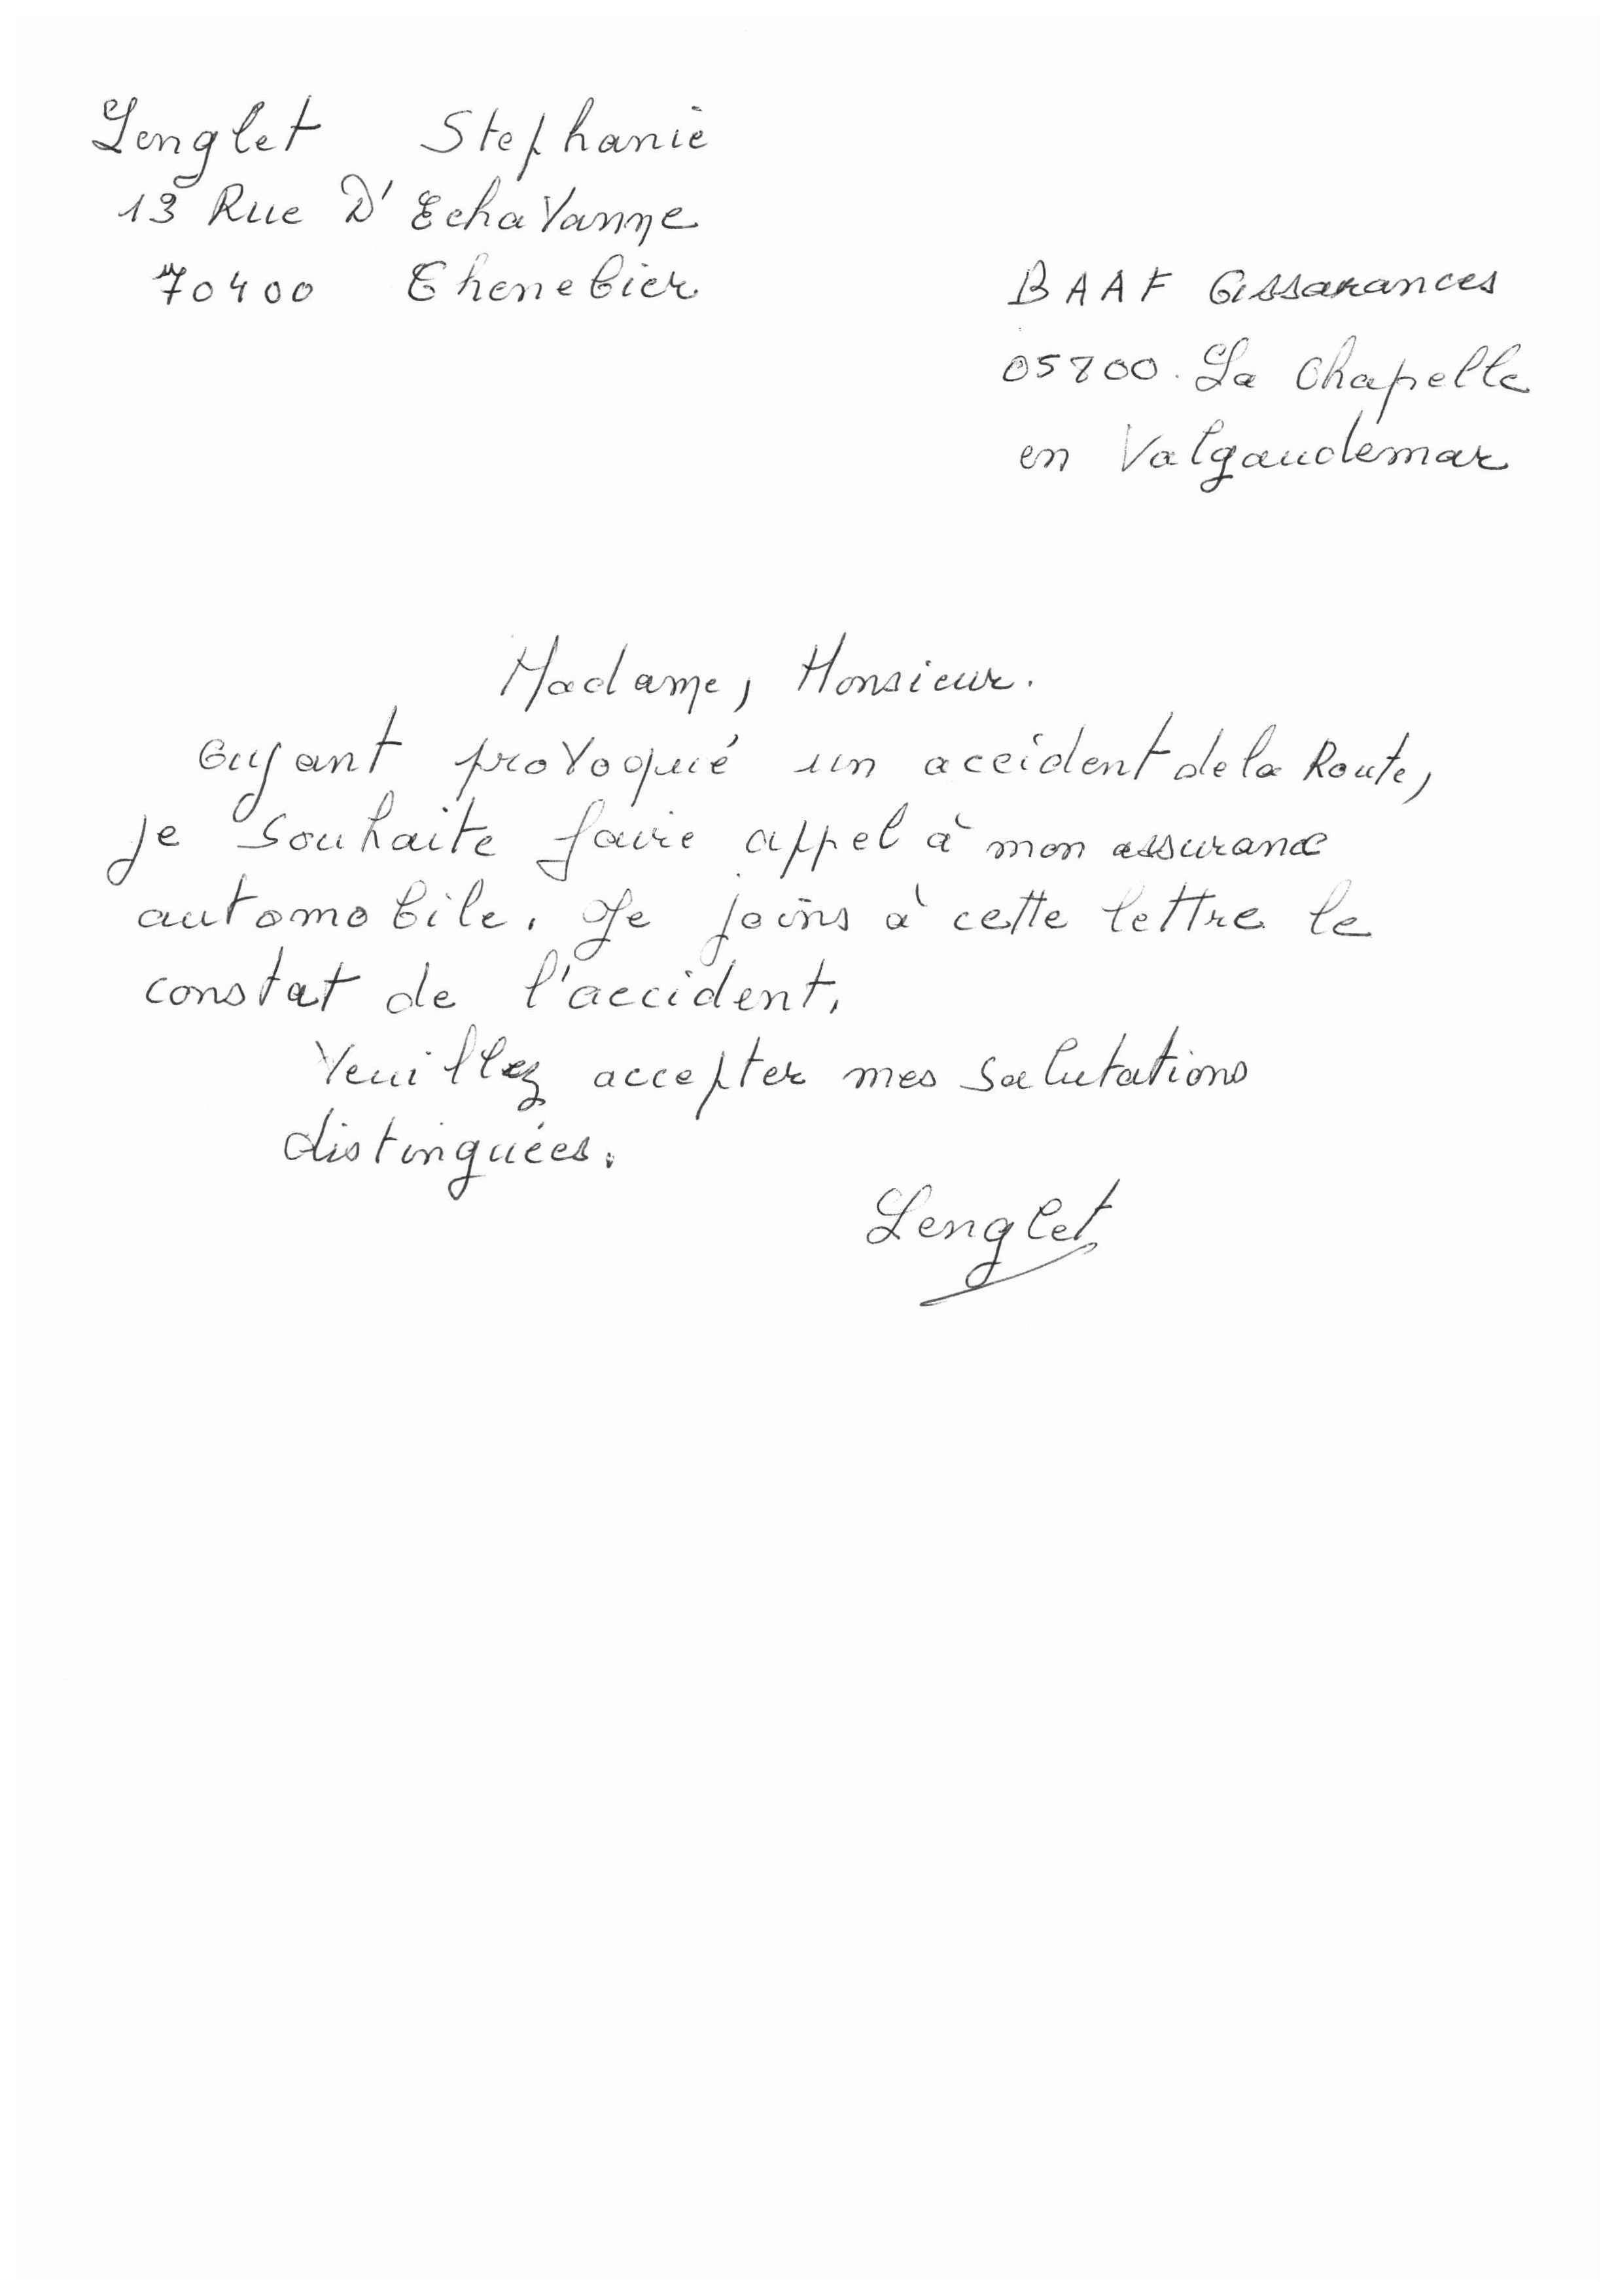 Lenglet Stephanie
13 Rue D'EchaVanne
70400 Chenebier
BAAF Assurances
05800 La Chapelle
en Valgaudemar
Madame, Monsieur.
ayant proVoqué un accident de la Route,
je souhaite faire appel à mon assurance
automobile. Je joins à cette lettre le
constat de l'accident.
Veuillez accepter mes salutations
distinguées.
Lenglet